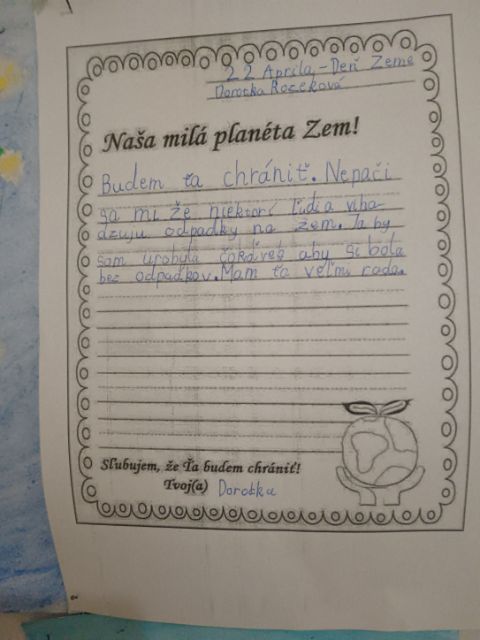 22 Aprila - Deň Zeme
Dorotka Rozeková
Naša milá planéta Zem!
Budem ťa chrániť. Nepači
sa mi že niektorí ľudia viha
dzuju odpadky na zem. Ja by
som urobila čokoľvek aby si bola
bez odpadkov. Mam ťa veľmi rada.
Sľubujem, že Ťa budem chrániť!
Tvoj(a) Dorotka